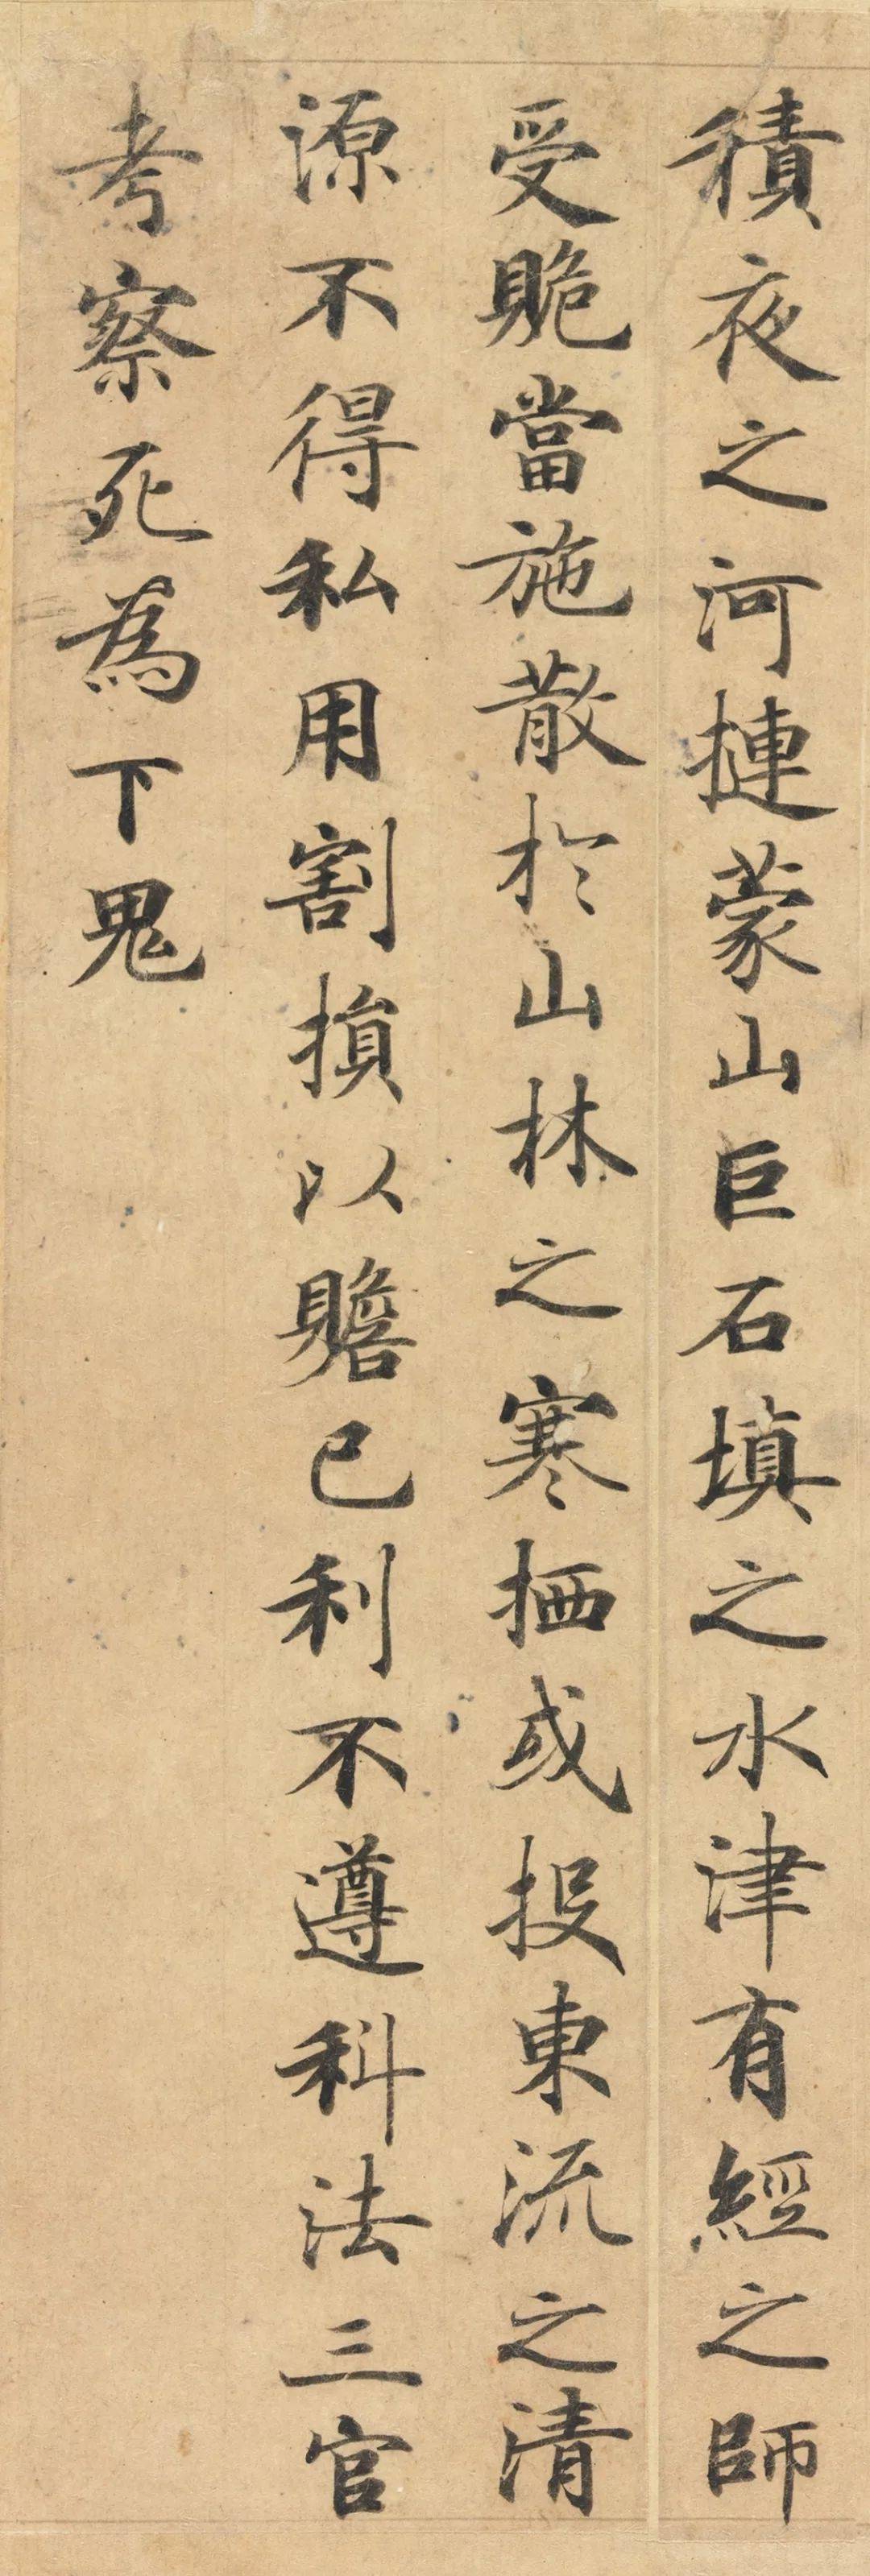 積夜之河摙蒙山巨石填之水津有經之師
受賄當施散於山林之寒栖或投東流之清
源不得私用割損以贍己利不遵科法三官
考察死為下鬼